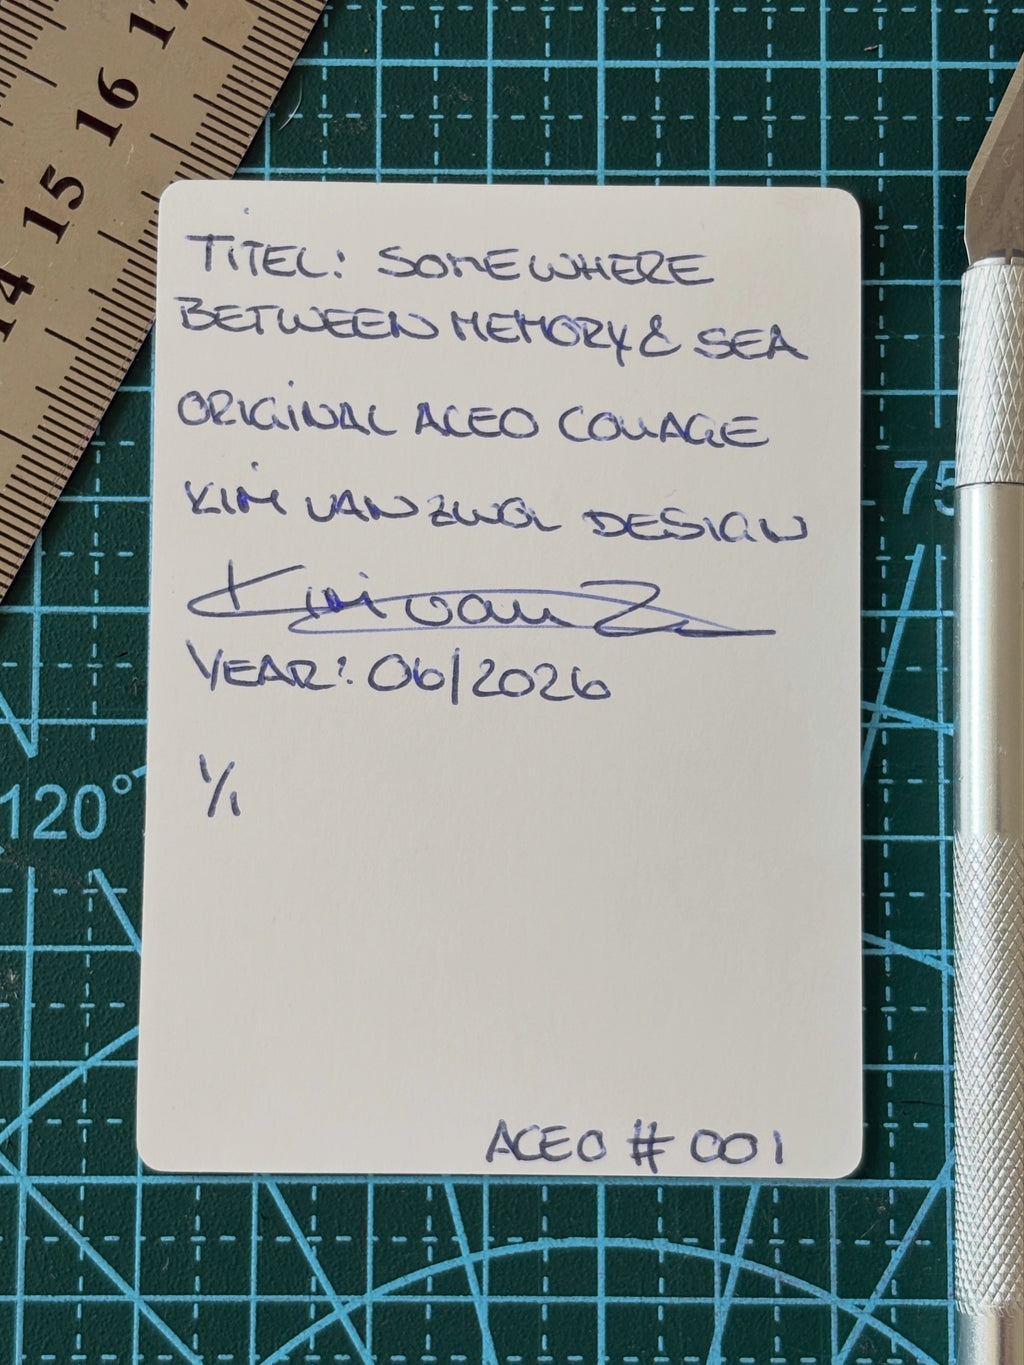 17
16
15
14
TITEL: SOMEWHERE
BETWEEN MEMORY & SEA
ORIGINAL ACEO COLLAGE
KIM VAN ZWOL DESIGN
Kim van Z
YEAR: 06/2026
1/1
ACEO # 001
75
120°